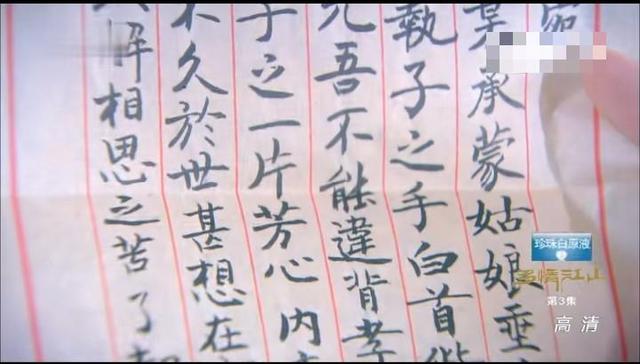 承蒙姑娘垂
執子之手白首
吾不能違背孝
子之一片芳心內
不久於世甚想在
解相思之苦了
珍珠白原液
多情江山
第3集
高清